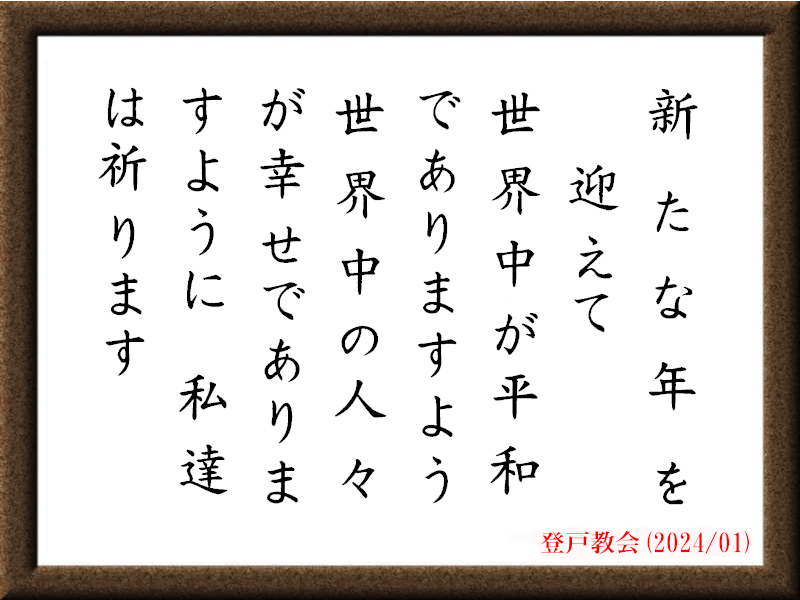 新たな年を
迎えて
世界中が平和
でありますよう
世界中の人々
が幸せでありま
すように 私達
は祈ります
登戸教会(2024/01)